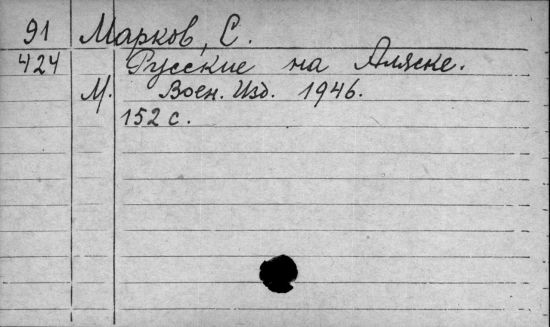 91 Марков, С.
424 Русские на Аляске.
М. Воен. Изд. 1946.
152 с.